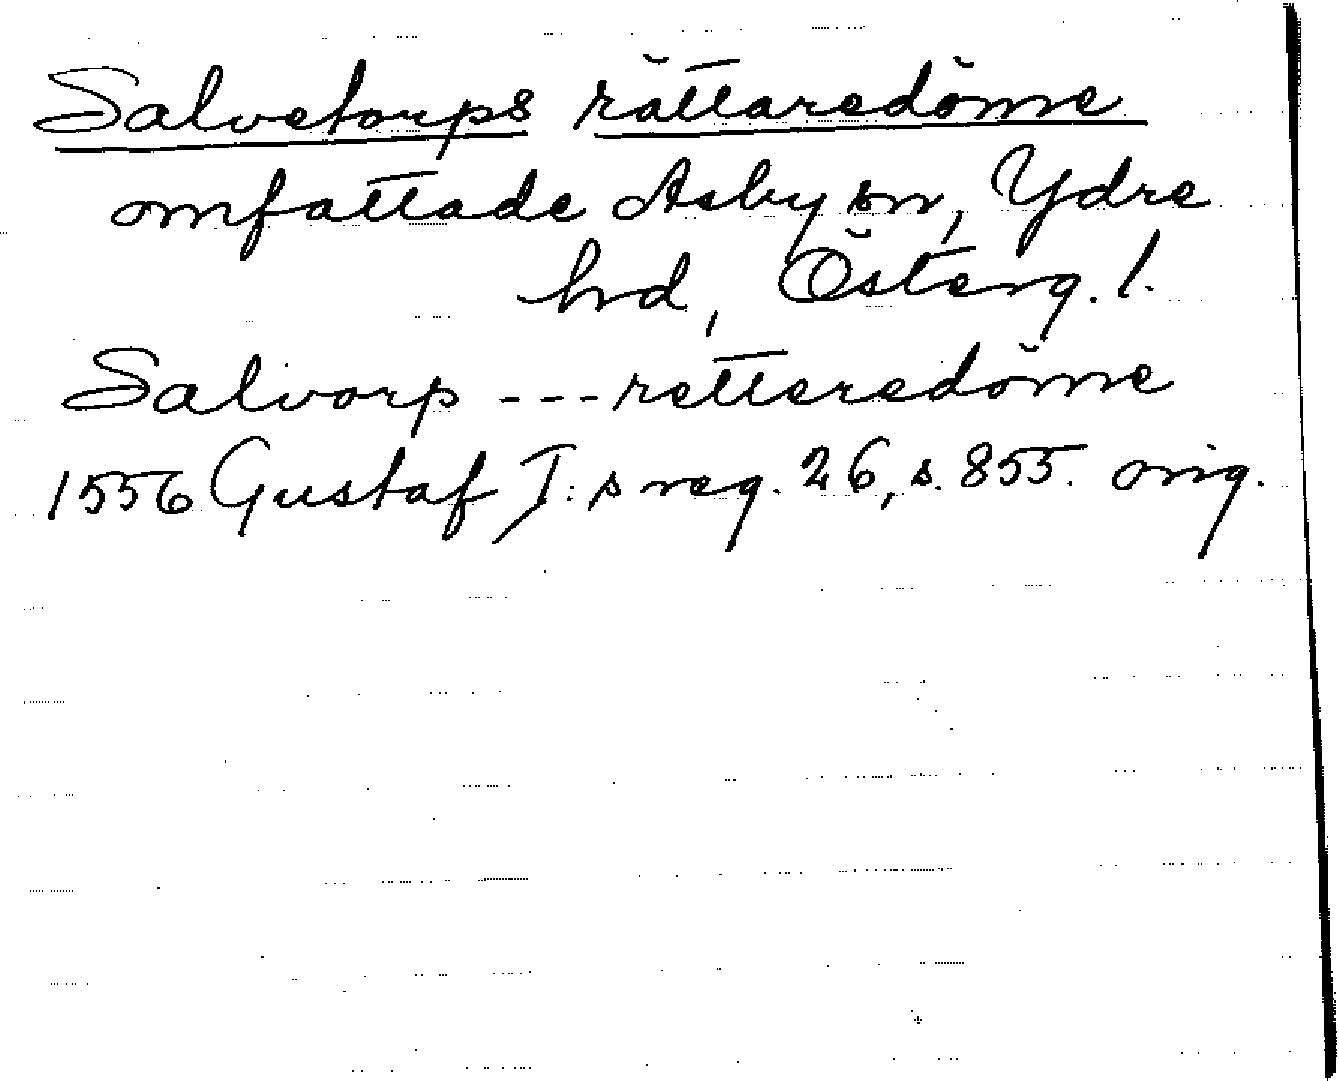 Salvetorps rättaredöme
omfattade Asby sn, Ydre
hd, Österg. l.
Salvorp --- retteredöme
1556 Gustaf I: s reg. 26, s. 855. orig.